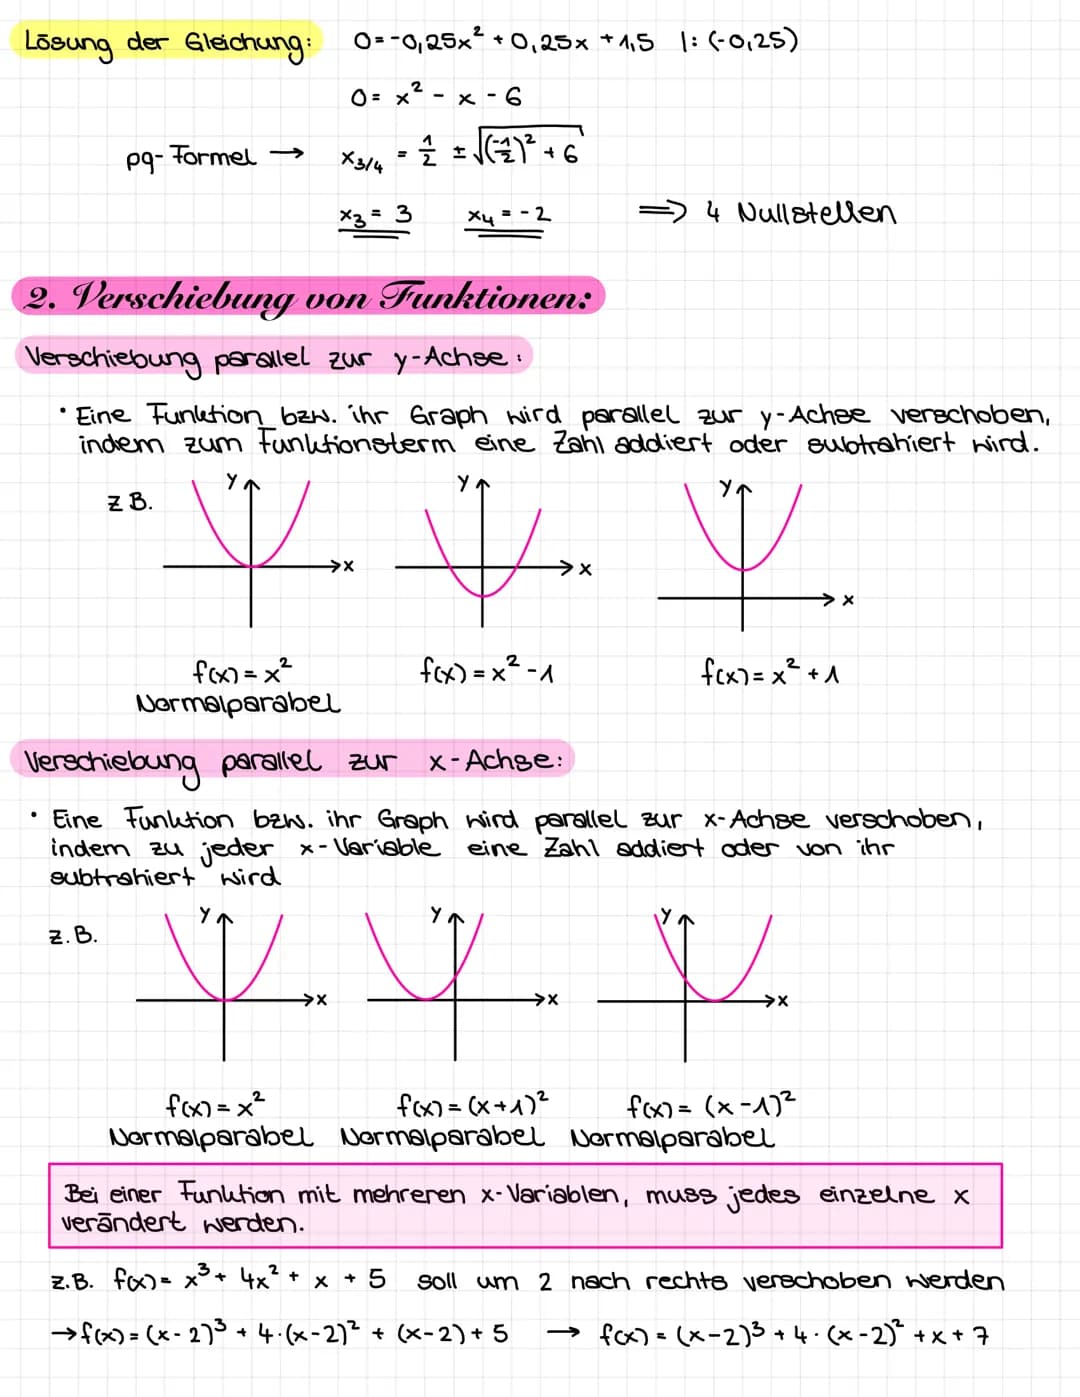 Lösung der Gleichung: 0=-0,25x² + 0,25x + 1,5 |: (-0,25)
0= x² - x - 6
pq-Formel → x₃/₄ = 1/2 ± √((-1/2)² + 6)
x₃ = 3 x₄ = -2 ⟹ 4 Nullstellen
2. Verschiebung von Funktionen:
Verschiebung parallel zur y-Achse:
• Eine Funktion bzw. ihr Graph wird parallel zur y-Achse verschoben,
indem zum Funktionsterm eine Zahl addiert oder subtrahiert wird.
z B. y y y
x x x
f(x) = x² f(x) = x² - 1 f(x) = x² + 1
Normalparabel
Verschiebung parallel zur x-Achse:
• Eine Funktion bzw. ihr Graph wird parallel zur x-Achse verschoben,
indem zu jeder x-Variable eine Zahl addiert oder von ihr
subtrahiert wird
z.B. y y y
x x x
f(x) = x² f(x) = (x+1)² f(x) = (x-1)²
Normalparabel Normalparabel Normalparabel
Bei einer Funktion mit mehreren x-Variablen, muss jedes einzelne x
verändert werden.
z.B. f(x) = x³ + 4x² + x + 5 soll um 2 nach rechts verschoben werden
→ f(x) = (x-2)³ + 4·(x-2)² + (x-2) + 5 → f(x) = (x-2)³ + 4·(x-2)² + x + 7